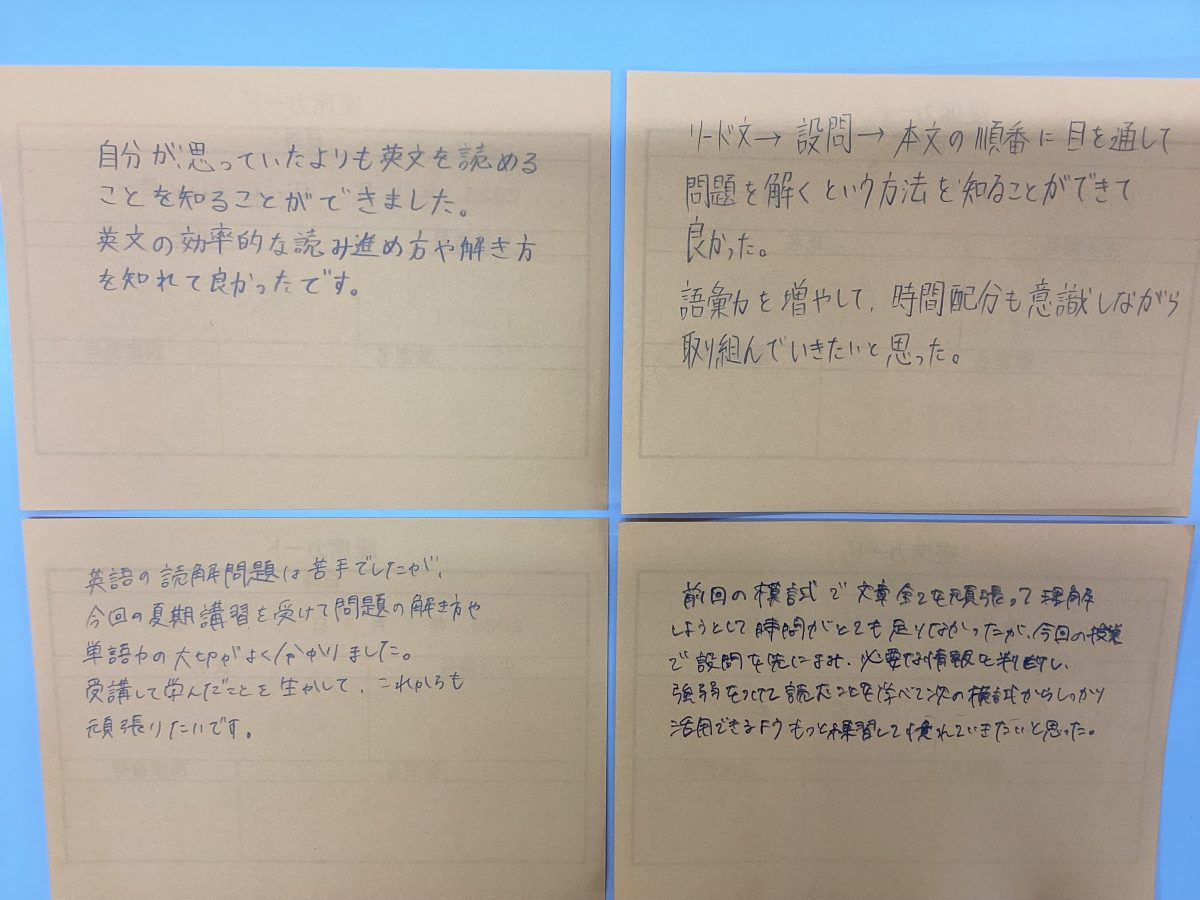 自分が思っていたよりも英文を読める
ことを知ることができました。
英文の効率的な読み進め方や解き方
を知れて良かったです。
リード文→設問→本文の順番に目を通して
問題を解くという方法を知ることができて
良かった。
語彙力を増やして、時間配分も意識しながら
取り組んでいきたいと思った。
英語の読解問題は苦手でしたが、
今回の夏期講習を受けて問題の解き方や
単語力の大切がよく分かりました。
受講して学んだことを生かして、これからも
頑張りたいです。
前回の模試で文章全てを頑張って理解
しようとして時間がとても足りなかったが、今回の授業
で設問を先によみ、必要な情報を判断し、
強弱をつけて読むことを学べて次の模試からしっかり
活用できるようもっと練習して慣れていきたいと思った。
座席カード
座席カード
座席カード